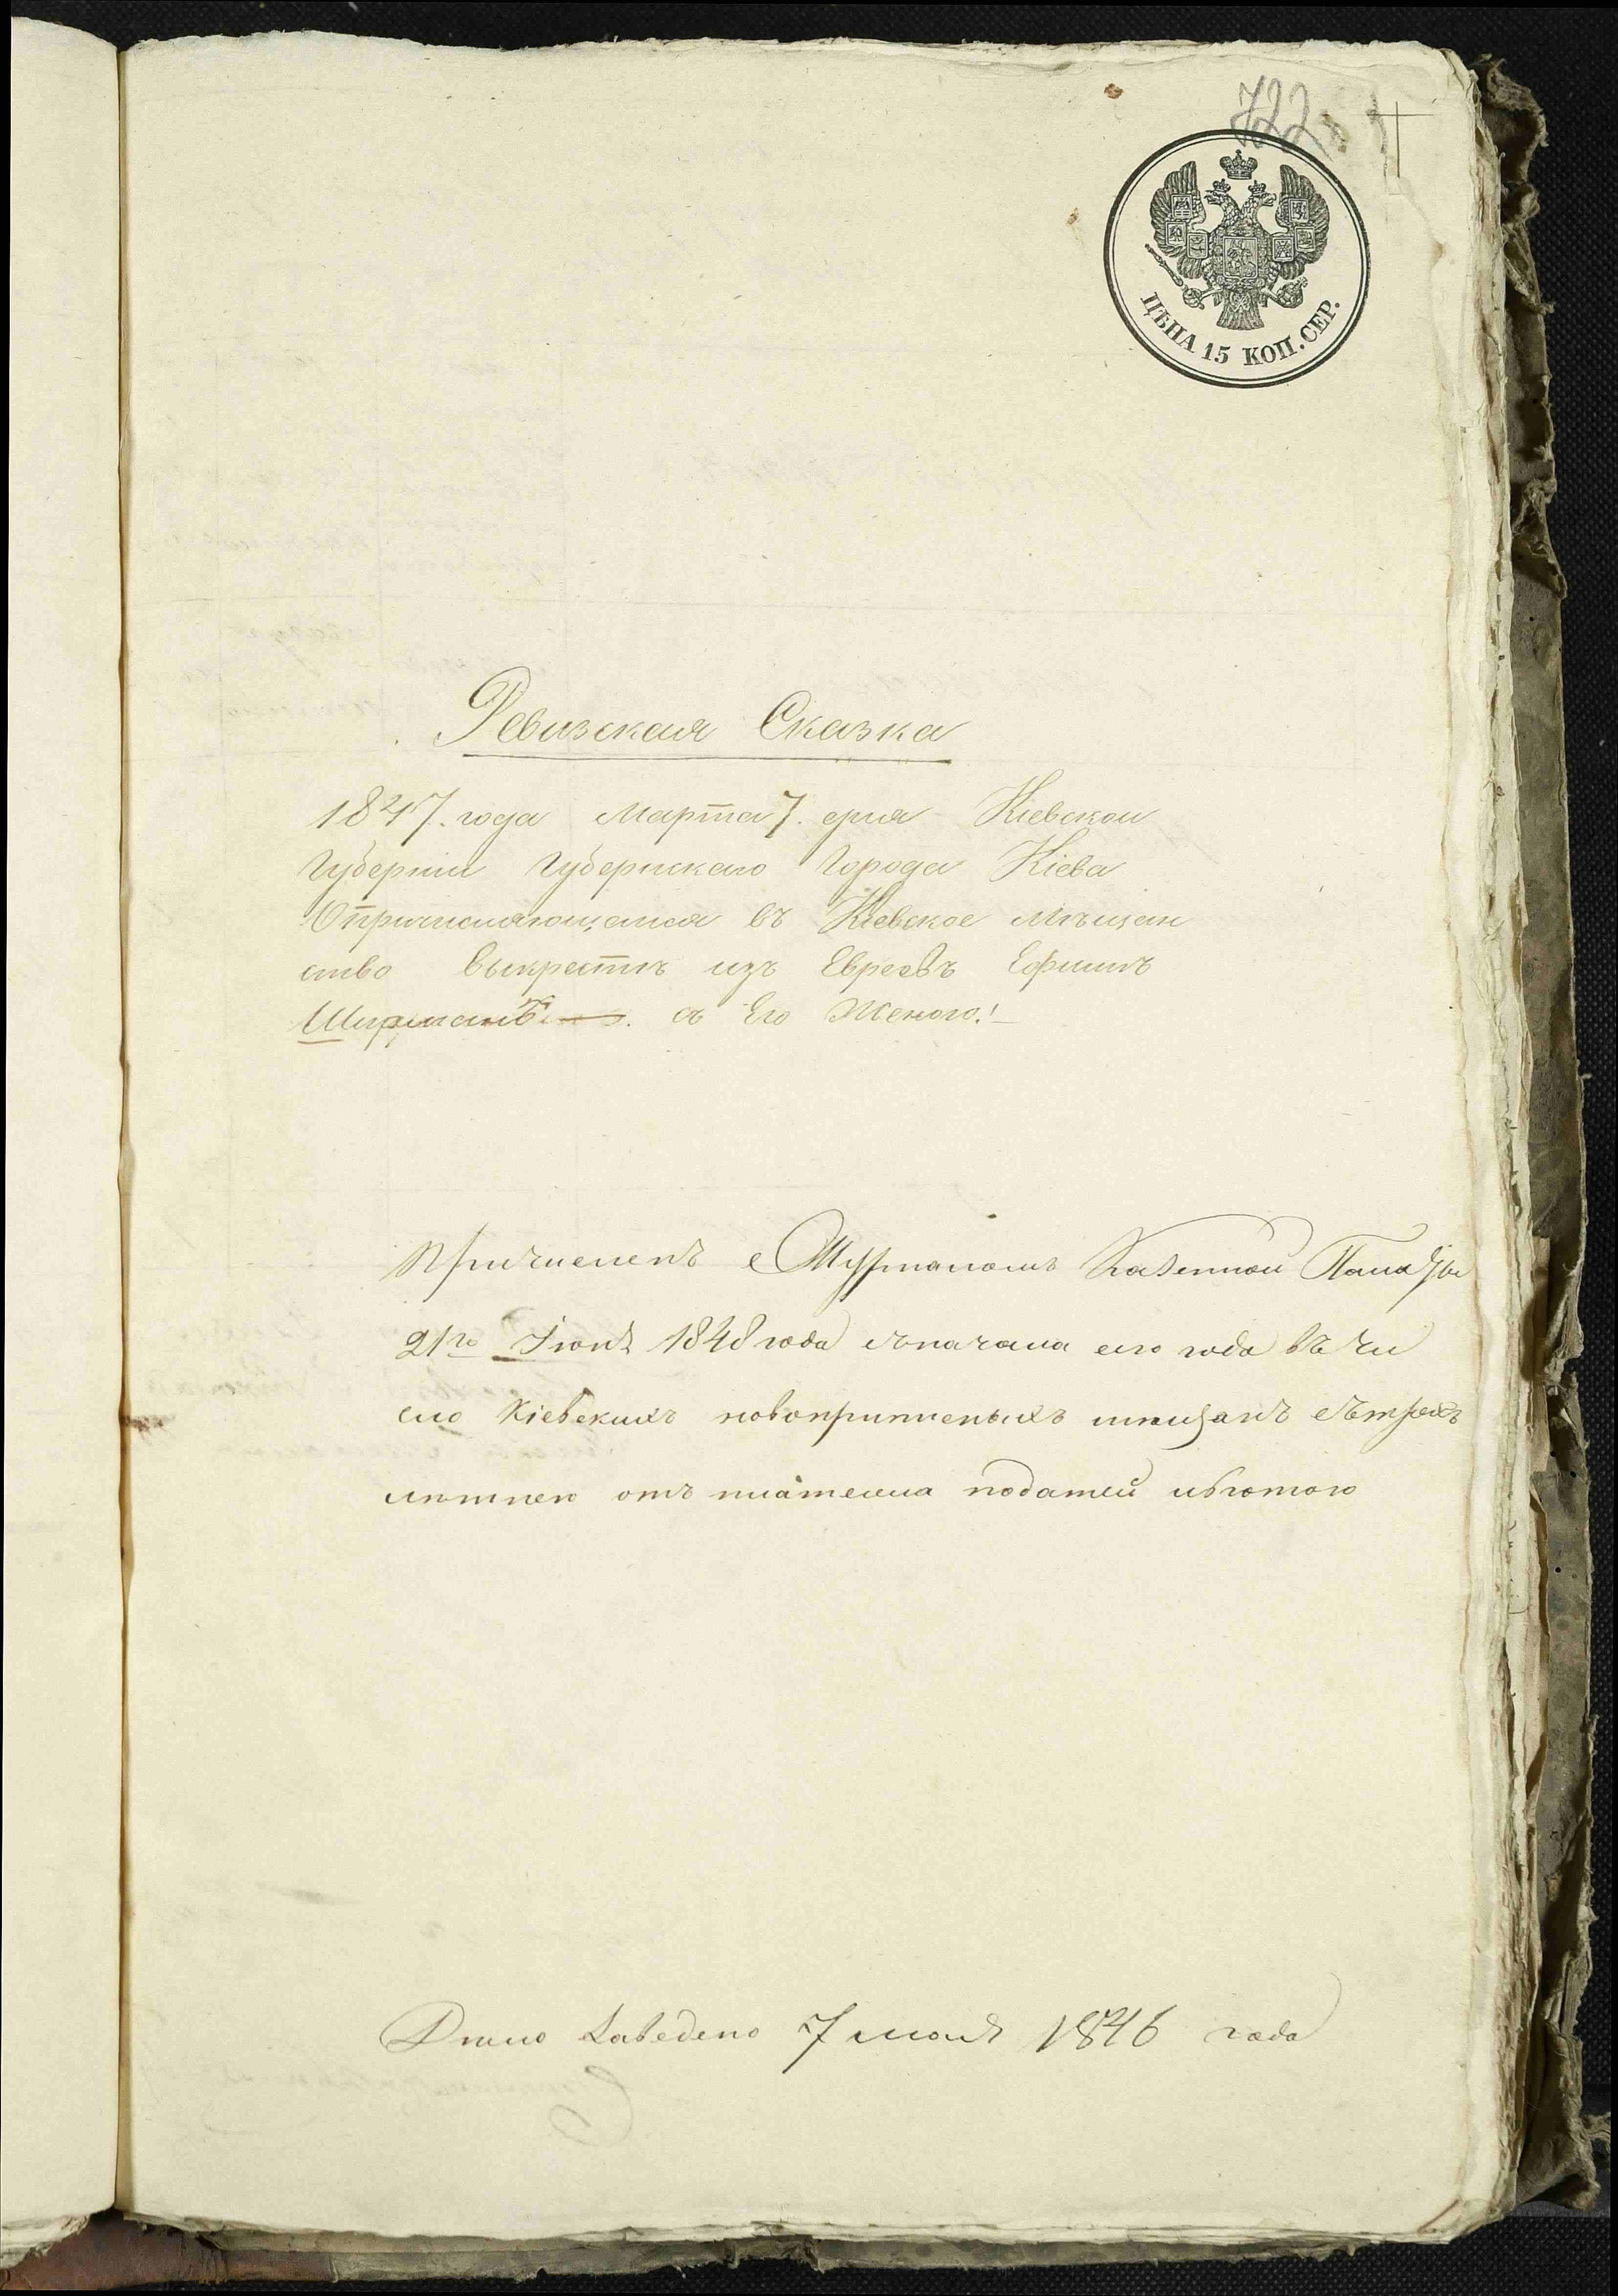 722
ЦѢНА 15 КОП. СЕР.
Ревизская Сказка
1847. года Марта 7. дня Кіевской
Губерніи Губернскаго Города Кіева
О причисляющемся въ Кіевское Мѣщан
ство выкрестъ изъ Евреевъ Ефимъ
Ширманъ съ Его Женою!
Причисленъ Журналомъ Казенной Палаты
21го Іюня 1848 года съ начала сего года въ чи
сло Кіевскихъ мѣщанъ съ трехъ
лѣтнею отъ платежа податей льготою
Дѣло Заведено 7 мая 1846 года